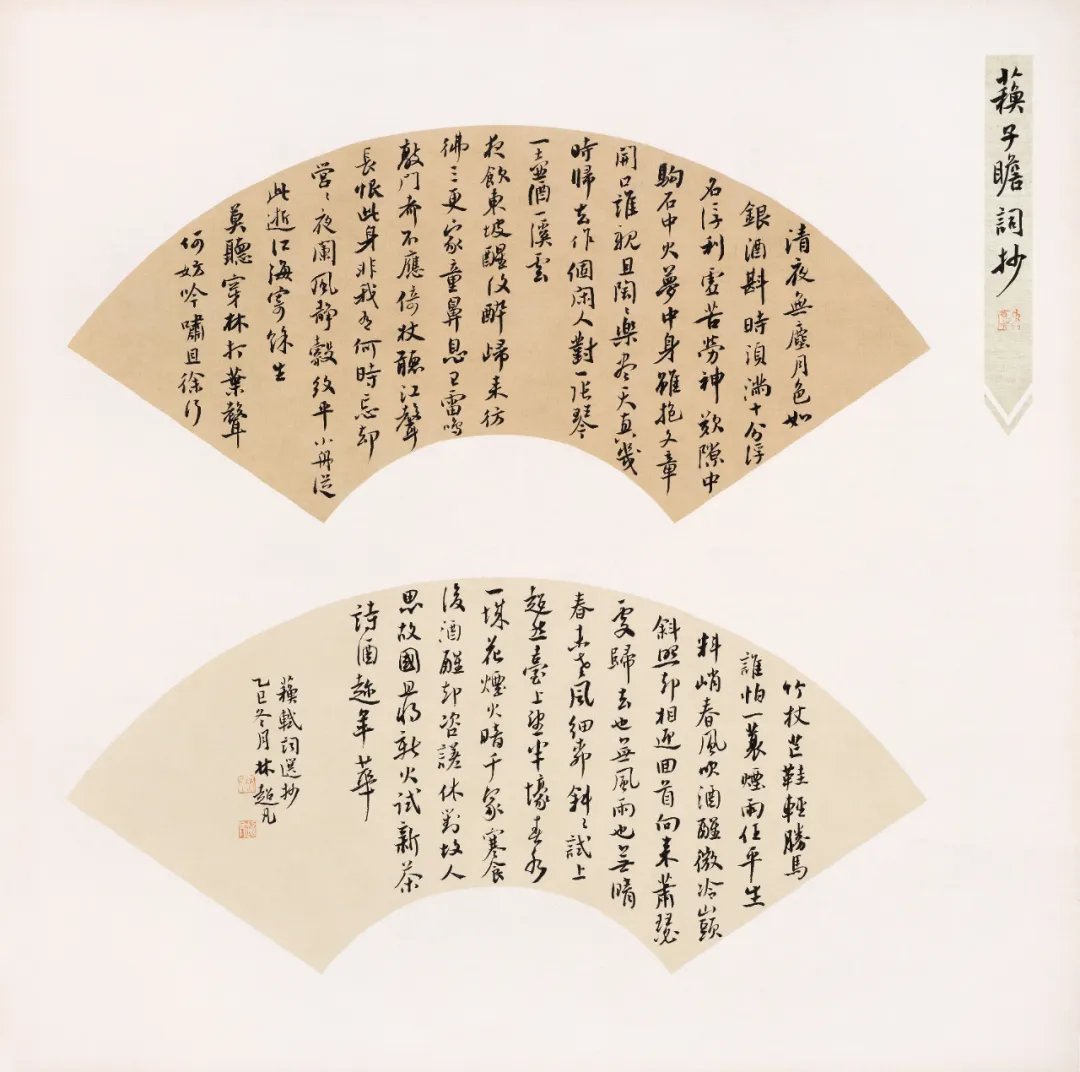 蘓子瞻詞抄
清夜無塵月色如
銀酒斟時須滿十分浮
名浮利虛苦勞神歎隙中
駒石中火夢中身雖抱文章
開口誰親且陶〻樂盡天真幾
時歸去作個閑人對一張琴
一壺酒一溪雲
夜飲東坡醒復醉歸來彷
彿三更家童鼻息已雷鳴
敲門都不應倚杖聽江聲
長恨此身非我有何時忘却
營〻夜闌風静縠紋平小舟從
此逝江海寄餘生
莫聽穿林打葉聲
何妨吟嘯且徐行
竹杖芒鞋輕勝馬
誰怕一蓑煙雨任平生
料峭春風吹酒醒微冷山頭
斜照却相迎回首向來蕭瑟
處歸去也無風雨也無晴
春未老風細柳斜〻試上
超然臺上望半壕春水
一城花煙火暗千家寒食
後酒醒却咨嗟休對故人
思故國且將新火試新茶
詩酒趁年華
蘓軾詞選抄
乙巳冬月林超凡